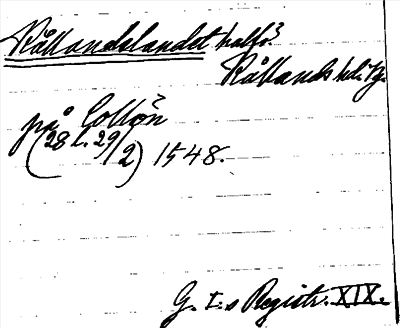 Rållandslandet halfö.
Rållands hd. Ty.
på Collön
(28 l. 29/2) 1548.
G. I:s Registr. XIX.